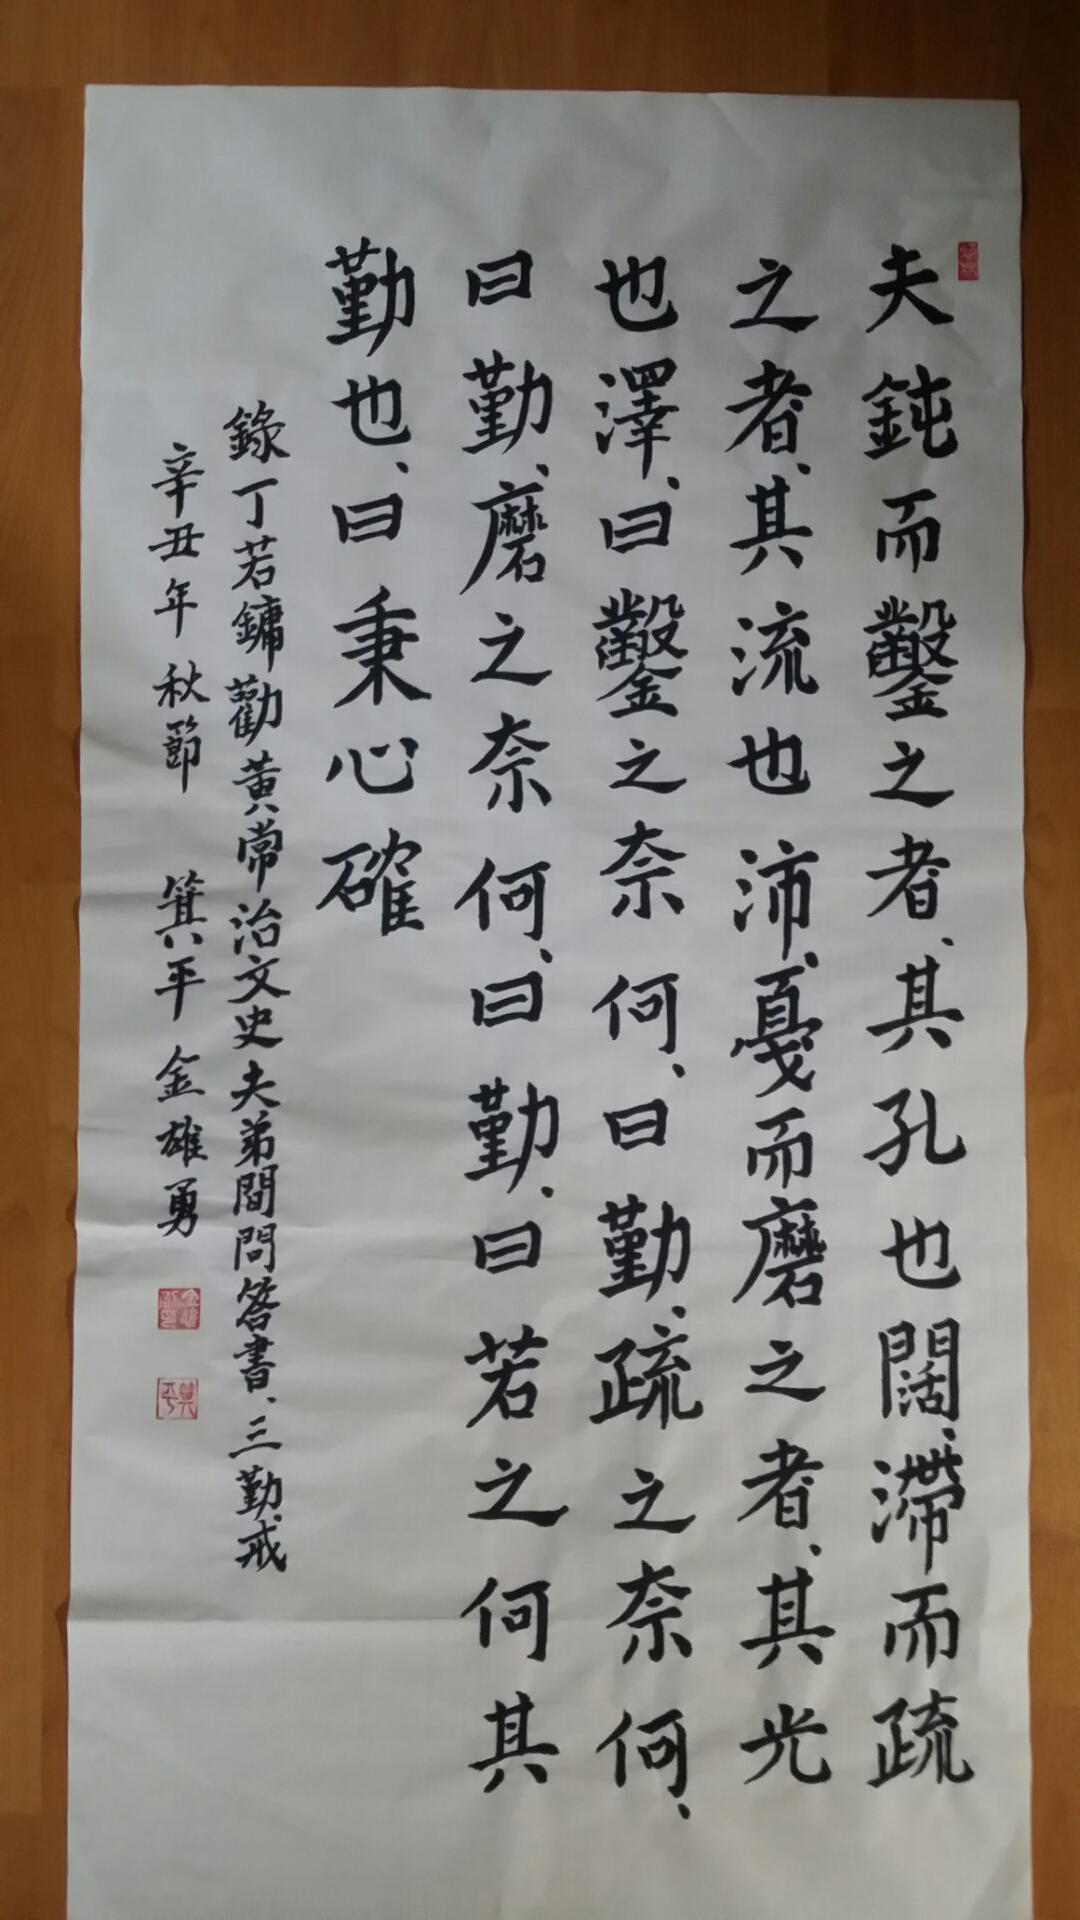 夫鈍而鑿之者、其孔也闊、滯而疏
之者、其流也沛、戞而磨之者、其光
也澤、曰鑿之奈何、曰勤、疏之奈何、
曰勤、磨之奈何、曰勤、曰若之何其
勤也、曰秉心確
錄丁若鏞勸黃常治文史夫弟間問答書、三勤戒
辛丑年秋節 箕平金雄勇
箕平